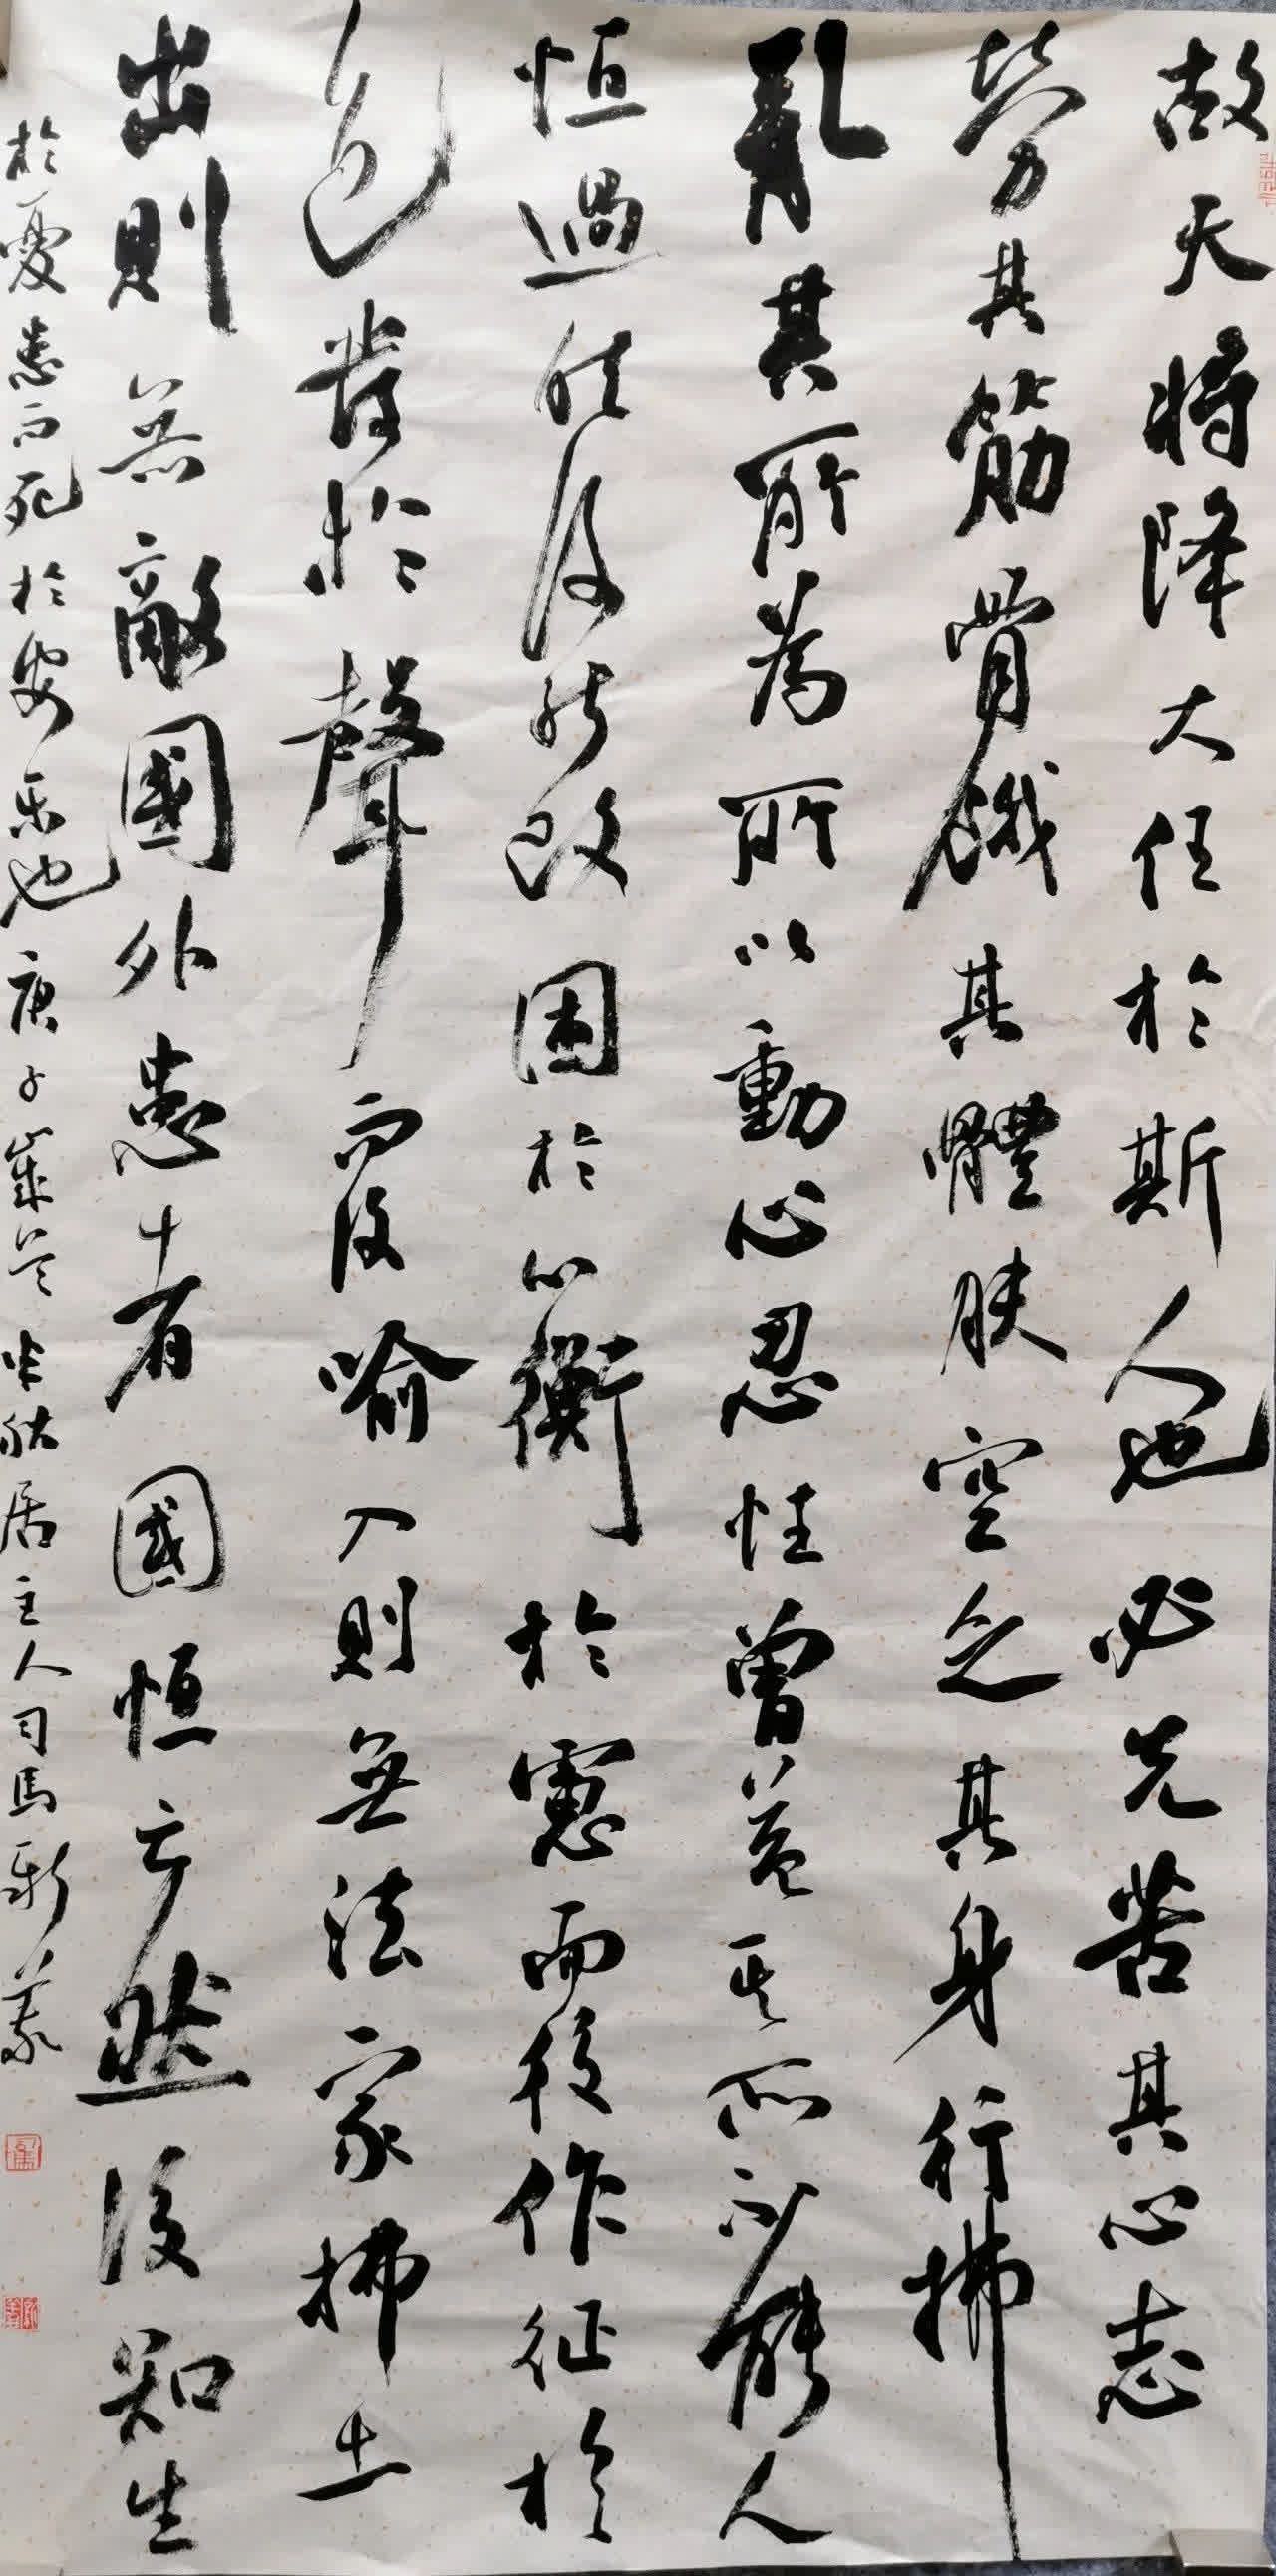 故天將降大任於斯人也必先苦其心志
勞其筋骨餓其體膚空乏其身行拂
亂其所為所以動心忍性曾益其所不能人
恒過然後能改困於心衡於慮而後作征於
色發於聲而後喻入則無法家拂士
出則無敵國外患者國恒亡然後知生
於憂患而死於安樂也庚子歲於半秋居主人司馬新義